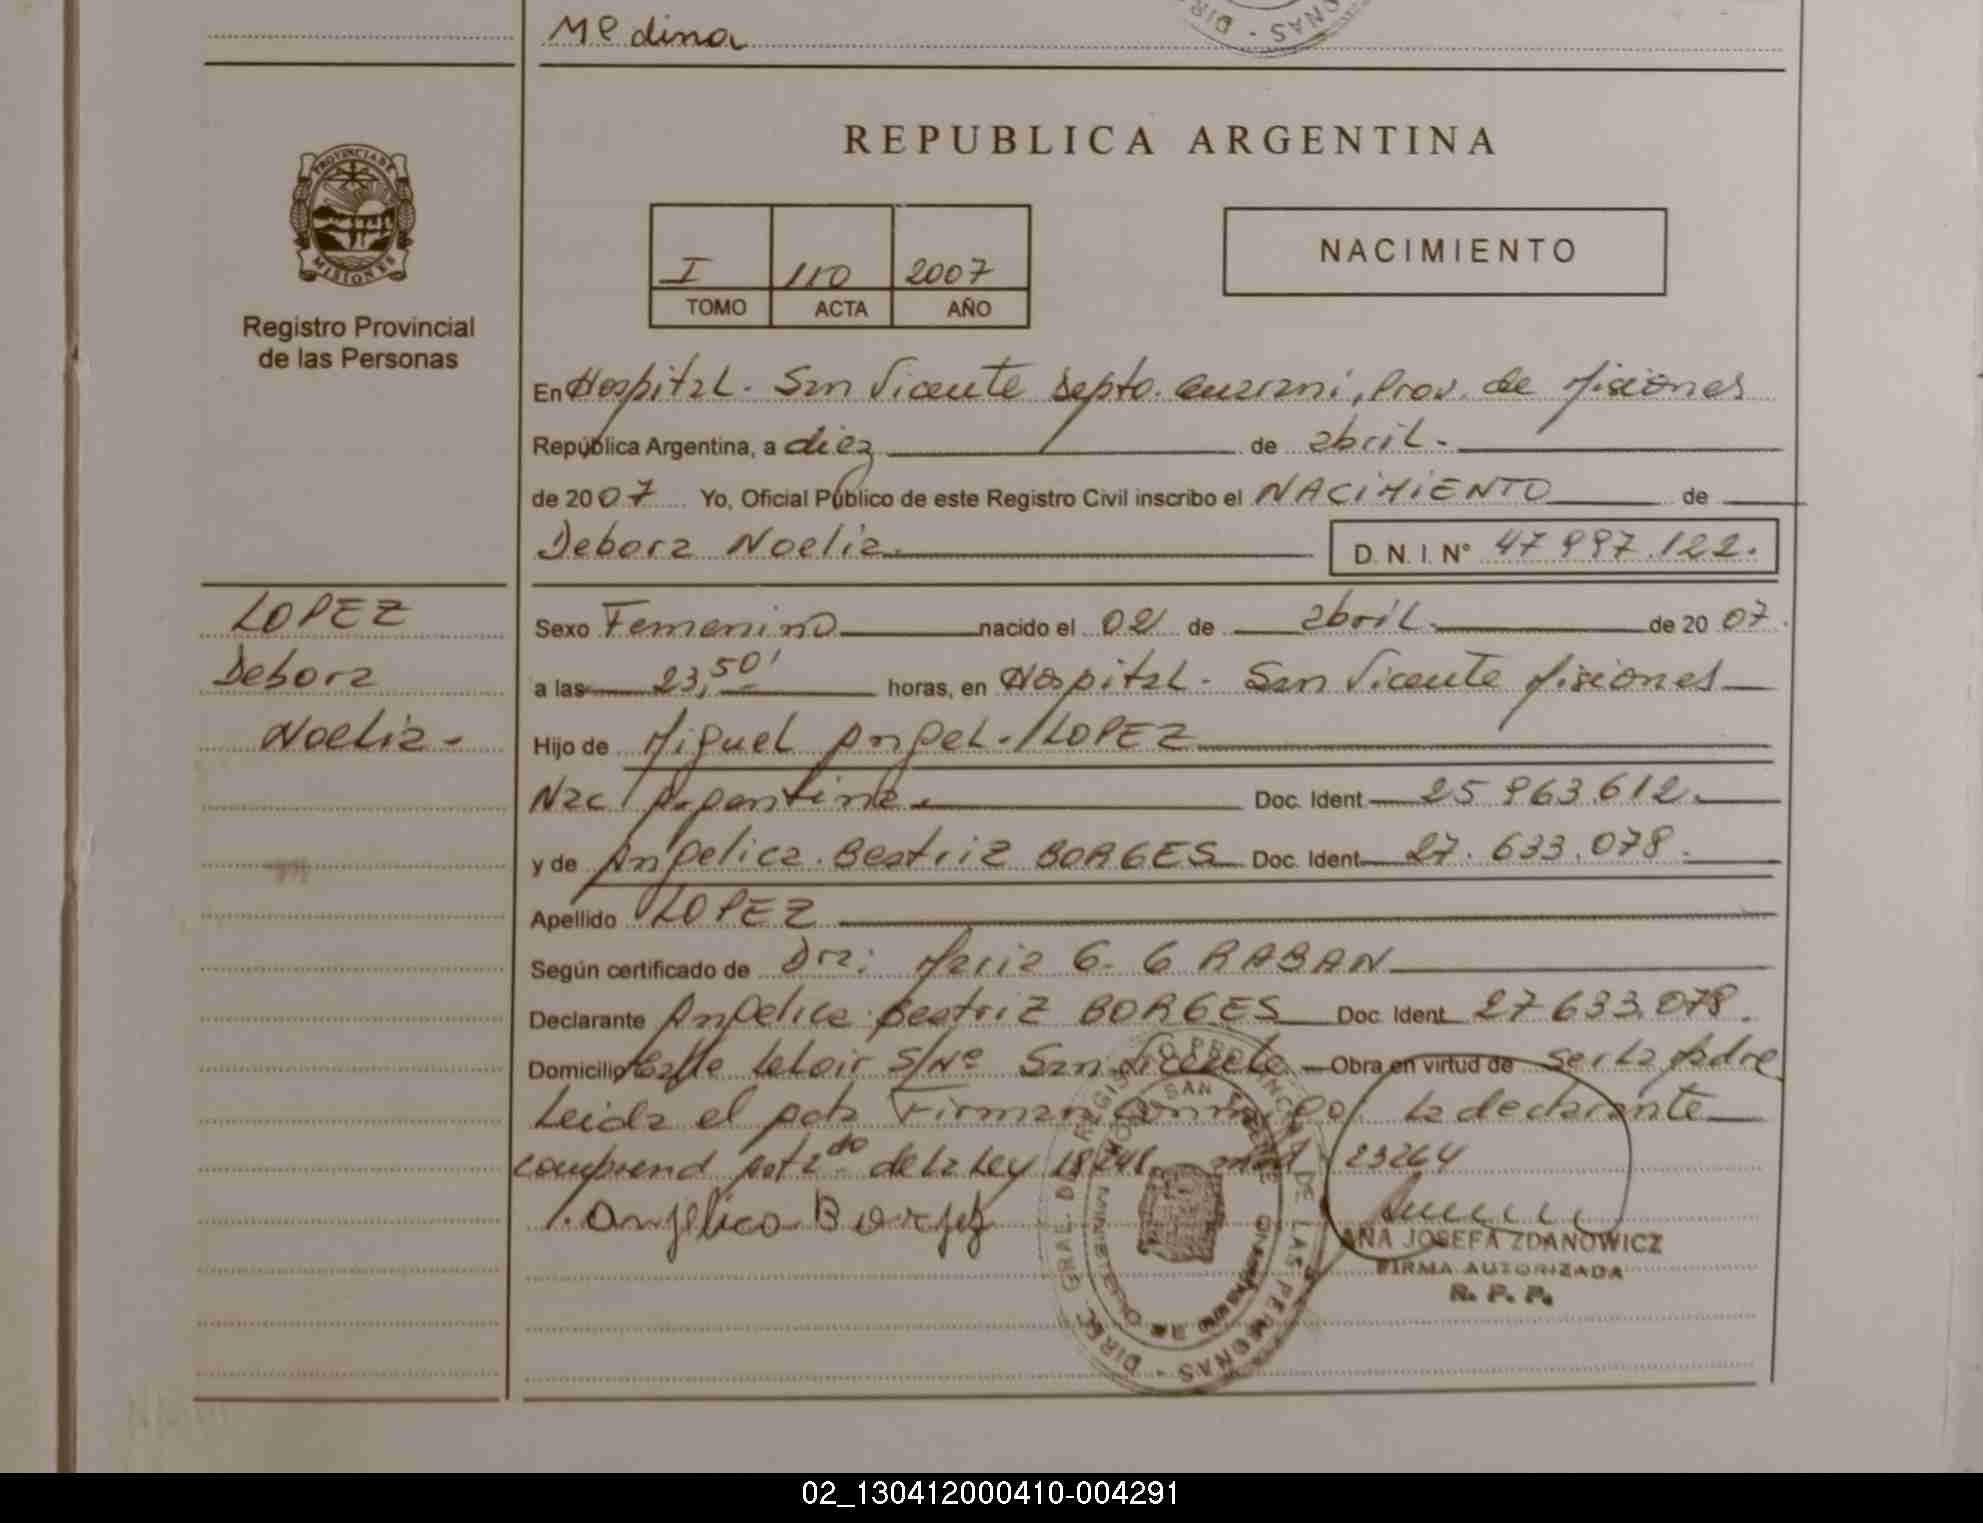 Medina
REPUBLICA ARGENTINA
PROVINCIA DE MISIONES
Registro Provincial
de las Personas
I 110 2007
TOMO ACTA AÑO
NACIMIENTO
En Hospital. San Vicente Depto. Guarani, Prov. de Misiones
República Argentina, a diez de abril.
de 2007 Yo, Oficial Público de este Registro Civil inscribo el NACIMIENTO de
Debora Noelia. D. N. I. Nº 47 997.122.
LOPEZ
Debora
Noelia -
Sexo Femenino nacido el 02 de abril. de 2007.
a las 23,50' horas, en Hospital. San Vicente Misiones
Hijo de Miguel Angel. LOPEZ
Nac Argentina. Doc. Ident 25 963.612.
y de Angelica. Beatriz BORGES Doc. Ident 27. 633.078.
Apellido LOPEZ
Según certificado de Dra: Maria G. G RABAN
Declarante Angelica Beatriz BORGES Doc Ident 27 633.078.
Domicilio Calle Leloir S/Nº San Vicente Obra en virtud de ser la Madre
Leida el acta Firman conmigo. la declarante
de la Ley 23264
Angelica Borges
ANA JOSEFA ZDANOWICZ
FIRMA AUTORIZADA
R. P. P.
02_130412000410-004291